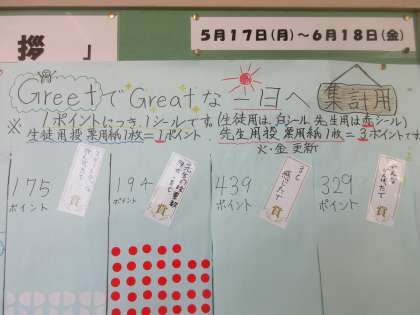 拶 」
5月17日(月)～6月18日(金)
GreetでGreatな一日へ 集計用
※ 1ポイントにつき、1シールです。(生徒用は、白シール、先生用は赤シール)
生徒用投票用紙1枚=1ポイント、先生用投票用紙1枚=3ポイントです。
火・金 更新
175
ポイント
賞
194
ポイント
賞
439
ポイント
賞
329
ポイント
賞